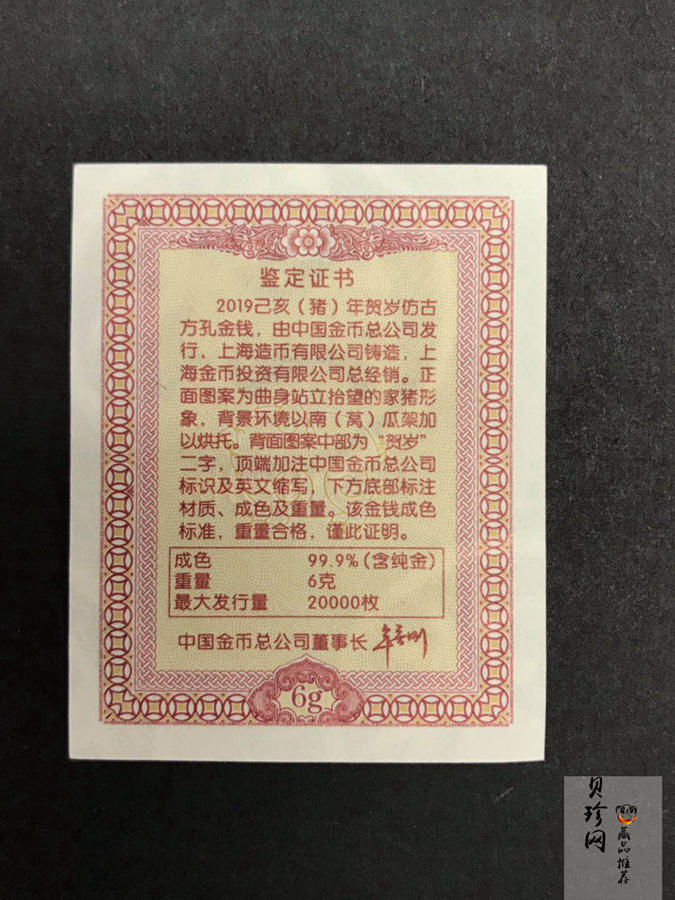 鉴定证书
2019己亥（猪）年贺岁仿古
方孔金钱，由中国金币总公司发
行，上海造币有限公司铸造，上
海金币投资有限公司总经销。正
面图案为曲身站立抬望的家猪形
象，背景环境以南（莴）瓜架加
以烘托。背面图案中部为“贺岁”
二字，顶端加注中国金币总公司
标识及英文缩写，下方底部标注
材质、成色及重量。该金钱成色
标准，重量合格，谨此证明。
成色 99.9%(含纯金)
重量 6克
最大发行量 20000枚
中国金币总公司董事长
6g
贝珍网
藏品推荐